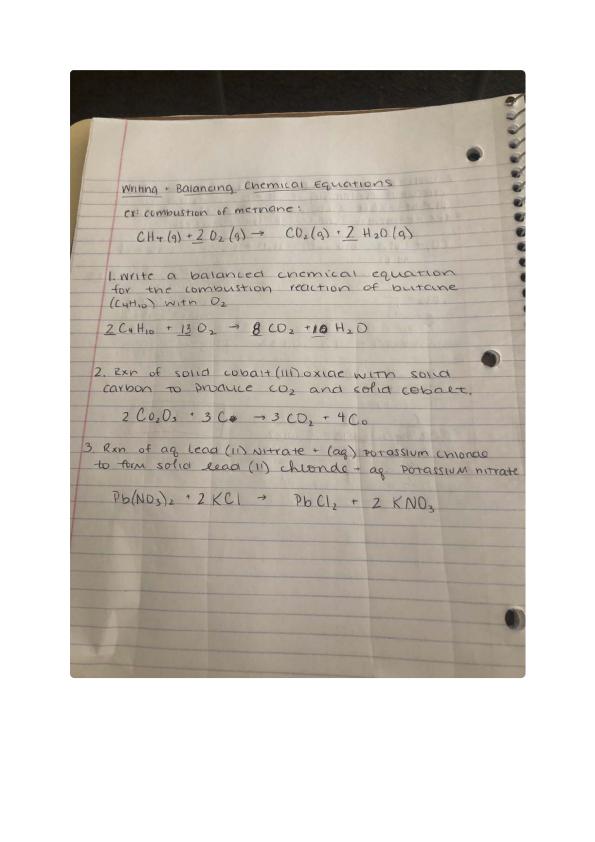 Writing + Balancing Chemical Equations
ex: combustion of methane:
CH₄(g) + 2 O₂(g) → CO₂(g) + 2 H₂O(g)
1. Write a balanced chemical equation
for the combustion reaction of butane
(C₄H₁₀) with O₂
2 C₄H₁₀ + 13 O₂ → 8 CO₂ + 10 H₂O
2. Rxn of solid cobalt(III) oxide with solid
carbon to produce CO₂ and solid cobalt.
2 Co₂O₃ + 3 C → 3 CO₂ + 4Co
3. Rxn of aq lead (II) Nitrate + (aq) Potassium chloride
to form solid lead (II) chloride + aq Potassium nitrate
Pb(NO₃)₂ + 2 KCl → PbCl₂ + 2 KNO₃